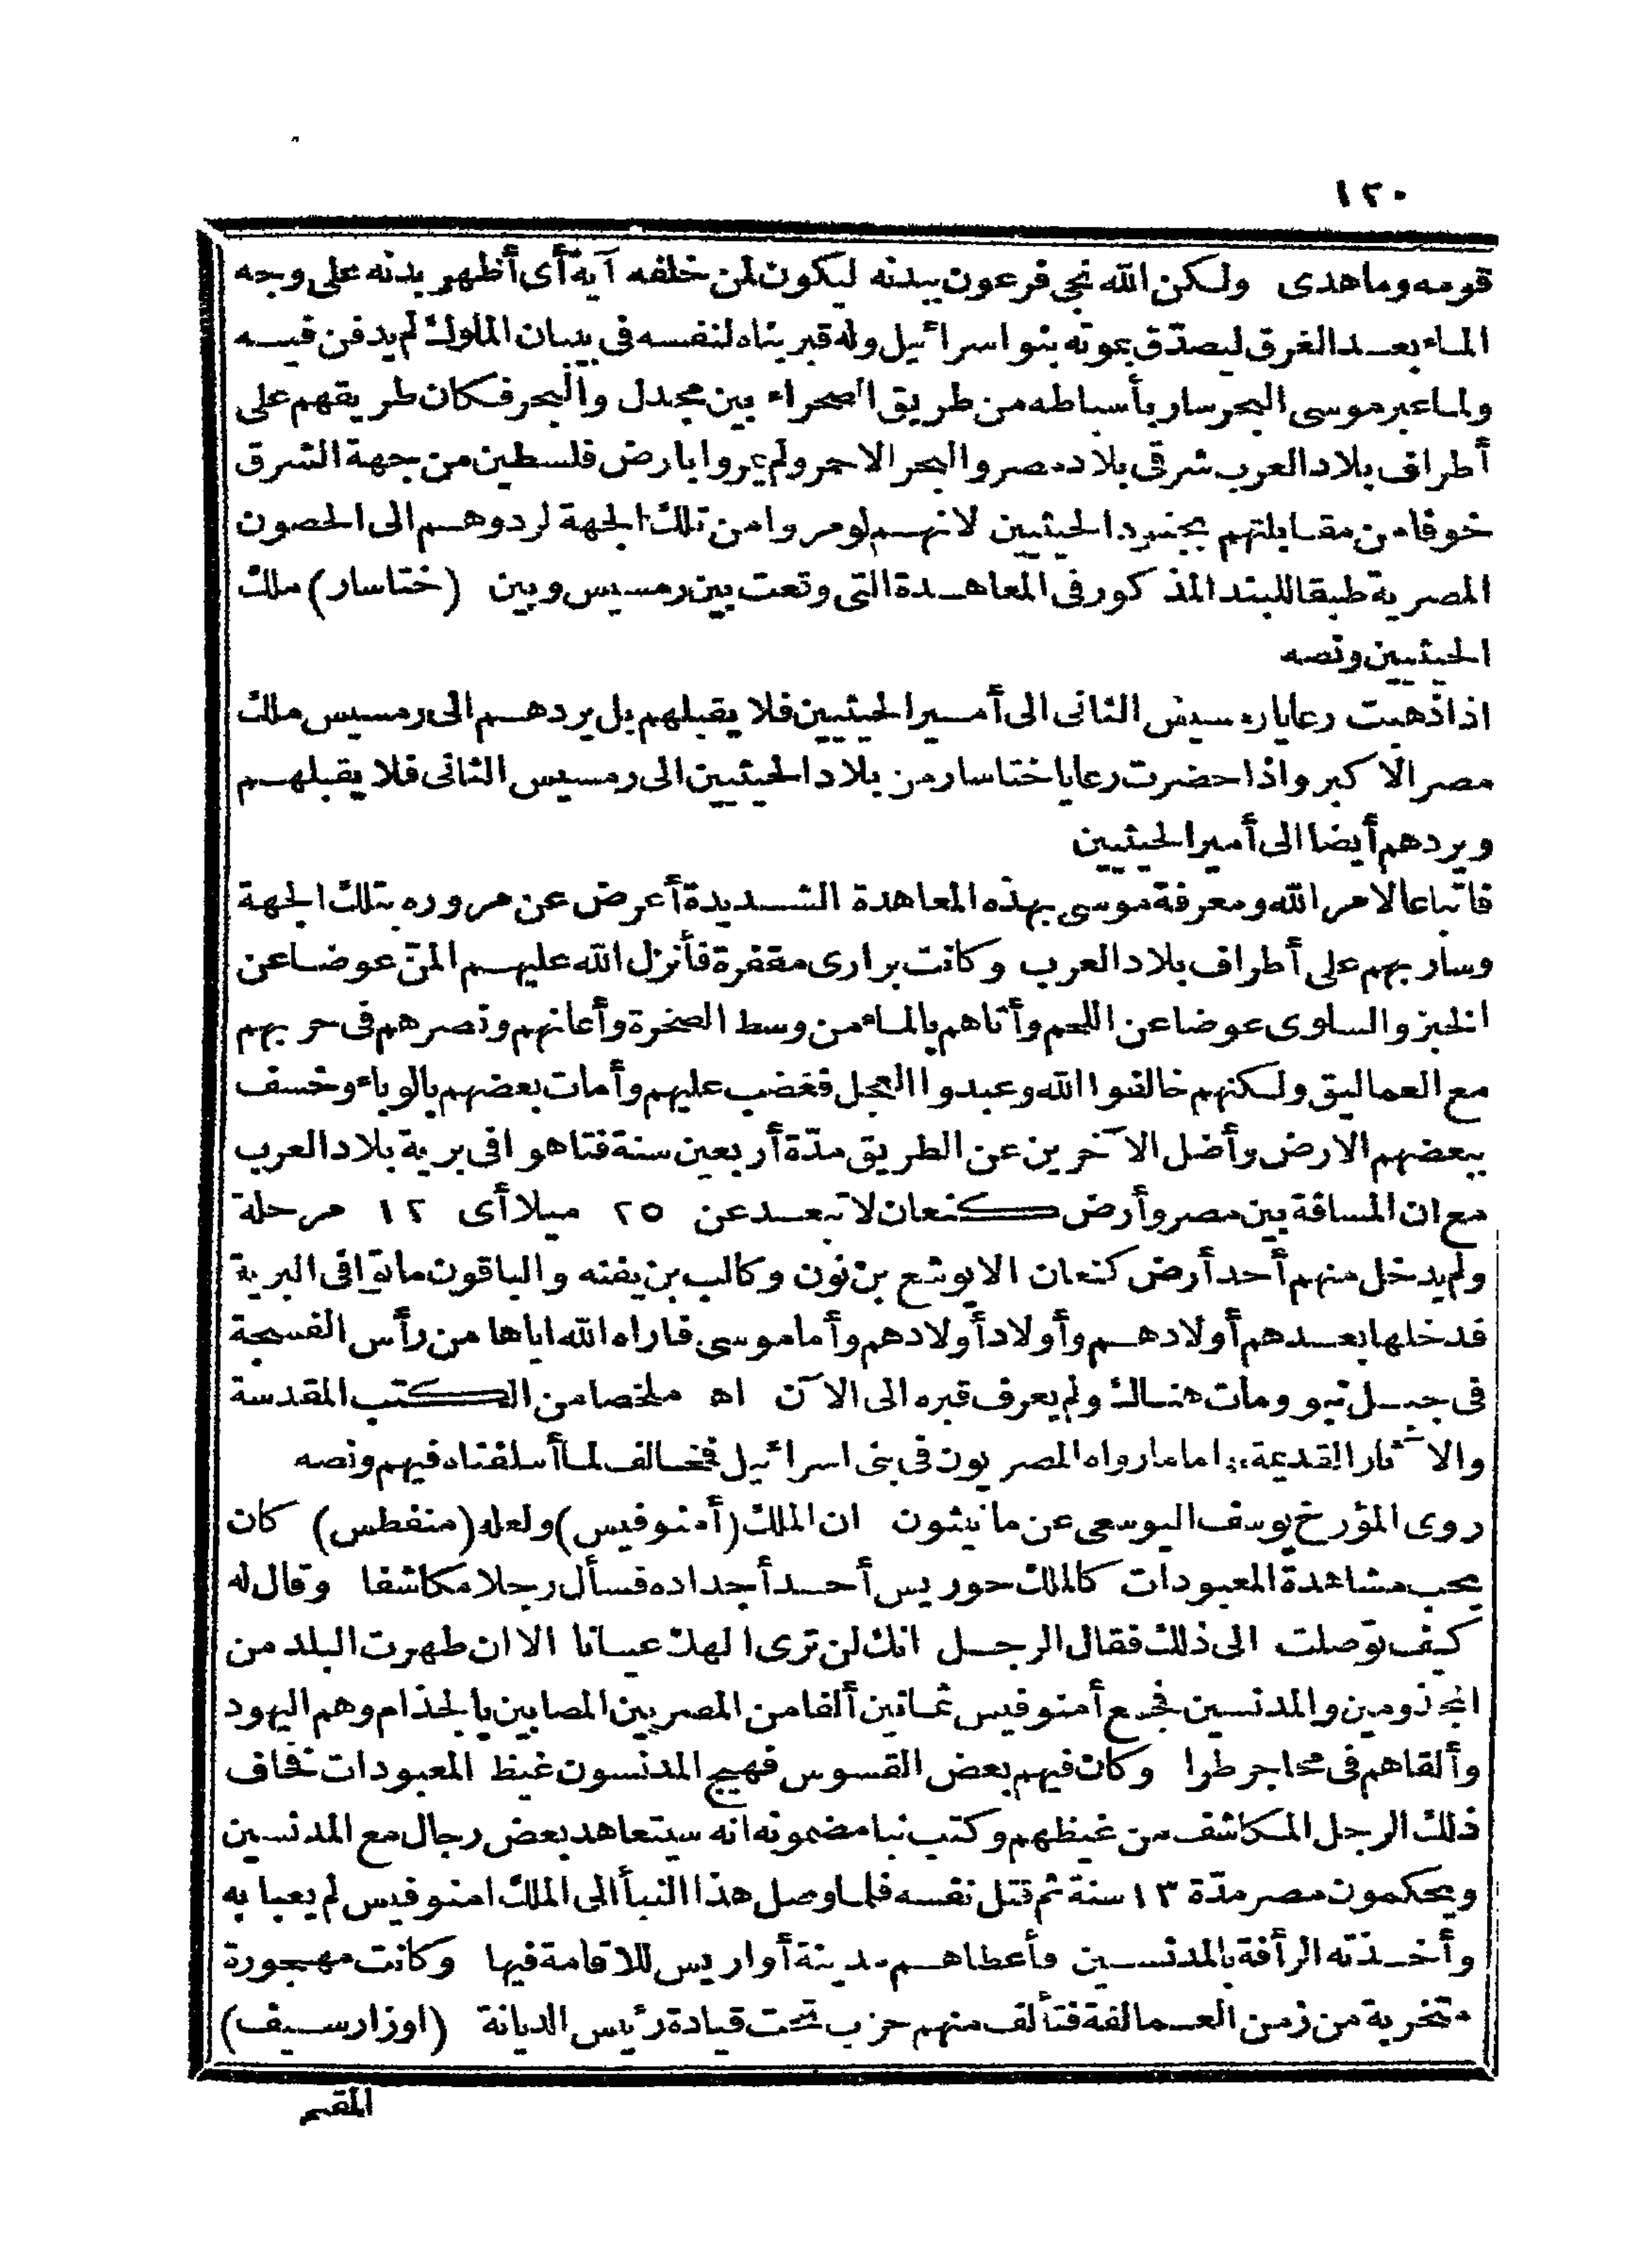 ١٢٠
قومه وماهدى ولكن الله نجى فرعون ببدنه ليكون لمن خلفه آية أى أظهر بدنه على وجه
الماء بعد الغرق ليصدّق بموته بنو اسرائيل وله قبر بناه لنفسه فى بيبان الملوك لم يدفن فيه
ولما عبر موسى البحر سار بأسباطه من طريق الصحراء بين مجدل والبحر فكان طريقهم على
أطراف بلاد العرب شرقى بلاد مصر والبحر الاحمر ولم يمروا بارض فلسطين من جهة الشرق
خوفا من مقابلتهم بجنود الحيثيين لانهم لو مروا من تلك الجهة لردوهم الى الحصون
المصرية طبقا للبند المذكور فى المعاهدة التى وقعت بين رمسيس وبين (ختاسار) ملك
الحيثيين ونصه
اذا ذهبت رعايا رمسيس الثانى الى أمير الحيثيين فلا يقبلهم بل يردهم الى رمسيس ملك
مصر الاكبر واذا حضرت رعايا ختاسار من بلاد الحيثيين الى رمسيس الثانى فلا يقبلهم
ويردهم أيضا الى أمير الحيثيين
فاتباعا لامر الله ومعرفة موسى بهذه المعاهدة الشديدة أعرض عن مروره بتلك الجهة
وسار بهم على أطراف بلاد العرب وكانت برارى مقفرة فأنزل الله عليهم المنّ عوضا عن
الخبز والسلوى عوضا عن اللحم وأتاهم بالماء من وسط الصخرة وأعانهم ونصرهم فى حربهم
مع العماليق ولكنهم خالفوا الله وعبدوا العجل فغضب عليهم وأمات بعضهم بالوباء وخسف
ببعضهم الارض وأضل الآخرين عن الطريق مدّة أربعين سنة فتاهوا فى برية بلاد العرب
مع ان المسافة بين مصر وأرض كنعان لا تبعد عن ٢٥ ميلا أى ١٢ مرحلة
ولم يدخل منهم أحد أرض كنعان الا يوشع بن نون وكالب بن يفنه والباقون ماتوا فى البرية
فدخلها بعدهم أولادهم وأولاد أولادهم وأما موسى فاراه الله اياها من رأس الفسجة
فى جبل نبو ومات هناك ولم يعرف قبره الى الآن اه ملخصا من الكتب المقدسة
والآثار القديمة، اما ما رواه المصريون فى بنى اسرائيل فمخالف لما أسلفناه فيهم ونصه
روى المؤرخ يوسف اليوسعى عن مانيثون ان الملك (أمنوفيس) ولعله (منفطس) كان
يحب مشاهدة المعبودات كالملك حوريس أحد أجداده فسأل رجلا مكاشفا وقال له
كيف توصلت الى ذلك فقال الرجل انك لن ترى الهك عيانا الا ان طهرت البلد من
المجذومين والمدنسين فجمع أمنوفيس ثمانين ألفا من المصريين المصابين بالجذام وهم اليهود
وألقاهم فى محاجر طرا وكان فيهم بعض القسوس فهيج المدنسون غيظ المعبودات فخاف
ذلك الرجل المكاشف من غيظهم وكتب نبا مضمونه انه سيتعاهد بعض رجال مع المدنسين
ويحكمون مصر مدّة ١٣ سنة ثم قتل نفسه فلما وصل هذا النبأ الى الملك امنوفيس لم يعبا به
وأخذته الرأفة بالمدنسين فأعطاهم مدينة أواريس للاقامة فيها وكانت مهجورة
متخربة من زمن العمالقة فتألف منهم حزب تحت قيادة رئيس الديانة (اوزارسيف)
المقيم